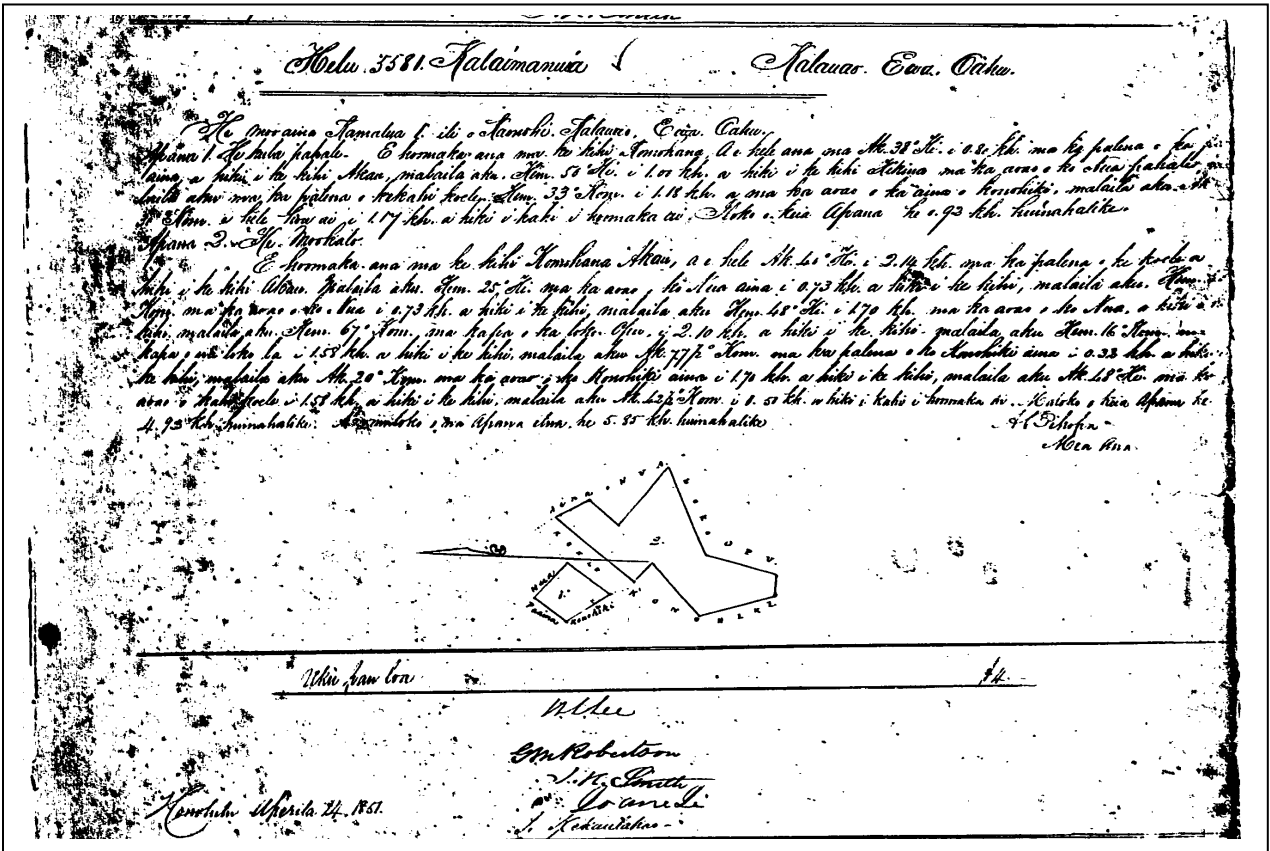 Helu. 3581. Kalaimanuia Kalauao. Ewa. Oahu.
He moo aina Kamalua 1. ili o Kamohi. Kalauao, Ewa. Oahu.
Apana 1. He kula pahale. E hoomaka ana ma ke kihi Komohana, A e hele ana ma Ak. 38° Hi. i 0.80 kh. ma ka palena o ka pa
aina, a hiki i ke kihi Akau, malaila aku. Hem. 50° Hi. i 1.00 kh. a hiki i ke kihi Hikina ma ka aoao o ko Nua pahale,
laila aku ma ka palena o kekahi koele. Hem. 33° Kom. i 1.18 kh. a ma ka aoao o ka aina o konohiki, malaila aku. Ak
Kom. i hele hou ai i 1.17 kh. a hiki i kahi i hoomaka ai. Koko o keia Apana he 0.92 kh. huinahalike.
Apana 2. He Mookalo.
E hoomaka ana ma ke kihi Komohana Akau, a e hele Ak. 40° Hi. i 2.14 kh. ma ka palena o ke koele a
hiki i ke kihi Akau. Malaila aku. Hem. 25° Hi. ma ka aoao o ko Nua aina i 0.73 kh. a hiki i ke kihi, malaila aku. Hem.
Kom. ma ka aoao o ko Nua i 0.73 kh. a hiki i ke kihi, malaila aku Hem. 48° Hi. i 1.70 kh. ma ka aoao o ko Nua, a hiki i ke
kihi, malaila aku. Hem. 67° Kom. ma kapa o ka loko Opu. i 2.10 kh. a hiki i ke kihi. malaila aku Hem. 16° Kom. ma
kapa o ua loko la i 1.58 kh. a hiki i ke kihi, malaila aku Ak. 77½° Kom. ma ka palena o ko Konohiki aina i 0.33 kh. a hiki
ke kihi, malaila aku Ak. 20° Kom. ma ka aoao o ko Konohiki aina i 1.70 kh. a hiki i ke kihi, malaila aku Ak. 48° Hi. ma ka
aoao o kahi koele i 1.58 kh. a hiki i ke kihi, malaila aku Ak. 42½° Kom. i 0.50 kh. a hiki i kahi i hoomaka ai. Maloko o keia Apana he
4.93 kh. huinahalike. A maloko o na Apana elua, he 5.85 kh. huinahalike
Mea Ana.
Aina o Nua
Loko Opu
2.
Koele
1.
Nua
Konohiki
Konohiki
Uku pau loa $4.
W. L. Lee
G M Robertson
J. H. Smith
Joane Ii
J. Kekaulahao
Honolulu Aperila 24. 1851.